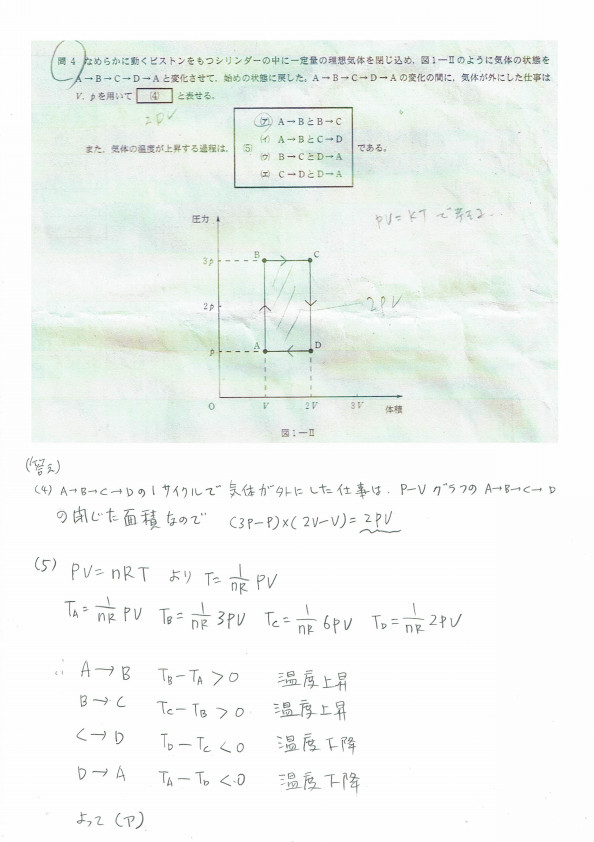 問4 なめらかに動くピストンをもつシリンダーの中に一定量の理想気体を閉じ込め，図1－Ⅱのように気体の状態を
A→B→C→D→Aと変化させて，始めの状態に戻した。A→B→C→D→Aの変化の間に，気体が外にした仕事は
V，pを用いて (4) と表せる。
2PV
また，気体の温度が上昇する過程は，(5)
(ア) A→BとB→C
(イ) A→BとC→D
(ウ) B→CとD→A
(エ) C→DとD→A
である。
PV=kTで考える..
圧力
3p
B
C
2p
2PV
p
A
D
O
V
2V
3V
体積
図1－Ⅱ
(答え)
(4) A→B→C→Dの1サイクルで気体が外にした仕事は、P-VグラフのA→B→C→D
の閉じた面積なので (3P-P)×(2V-V)=2PV
(5) PV=nRT より T=1/nR PV
TA=1/nR PV TB=1/nR 3PV TC=1/nR 6PV TD=1/nR 2PV
∴ A→B TB-TA>0 温度上昇
B→C TC-TB>0 温度上昇
C→D TD-TC<0 温度下降
D→A TA-TD<0 温度下降
よって (ア)